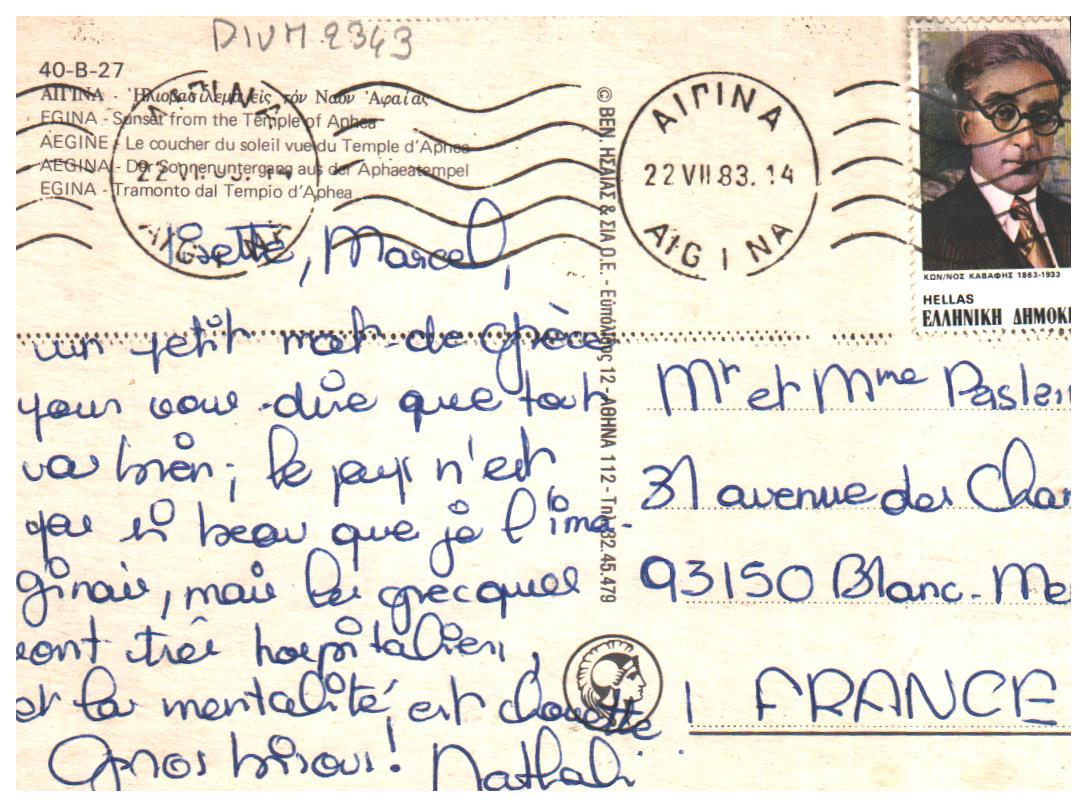 DIVM 2343
40-B-27
ΑΙΓΙΝΑ - Ἡλιοβασίλεμα εἰς τόν Ναόν Ἀφαίας
EGINA - Sunset from the Temple of Aphea
AEGINE - Le coucher du soleil vue du Temple d'Aphea
AEGINA - Der Sonnenuntergang aus der Aphaeatempel
EGINA - Tramonto dal Tempio d'Aphea
ΑΙΓΙΝΑ
22 VII 83. 14
AIGINA
ΑΙΓΙΝΑ
22 VII 83. 14
AIGINA
ΚΩΝ/ΝΟΣ ΚΑΒΑΦΗΣ 1863-1933
HELLAS
ΕΛΛΗΝΙΚΗ ΔΗΜΟΚ
© ΒΕΝ. ΗΣΑΙΑΣ & ΣΙΑ Ο.Ε. - Εὐπόλιδος 12 - ΑΘΗΝΑ 112 - Τηλ. 32.45.479
Lisette, Marcel,
un petit mot de Grèce
pour vous dire que tout
va bien; le pays n'est
pas si beau que je l'ima-
ginais, mais les grecques
sont très hospitaliers,
et la mentalité est chouette
Gros bisous! Nathali
Mr et Mme Paslei
31 avenue des Cha
93150 Blanc-Me
FRANCE